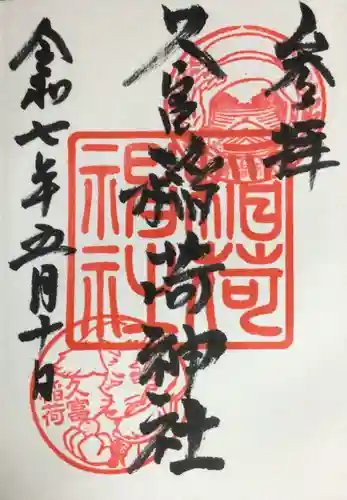 参拝
久富稲荷神社
令和七年五月十日
稲荷
神社
久富
稲荷